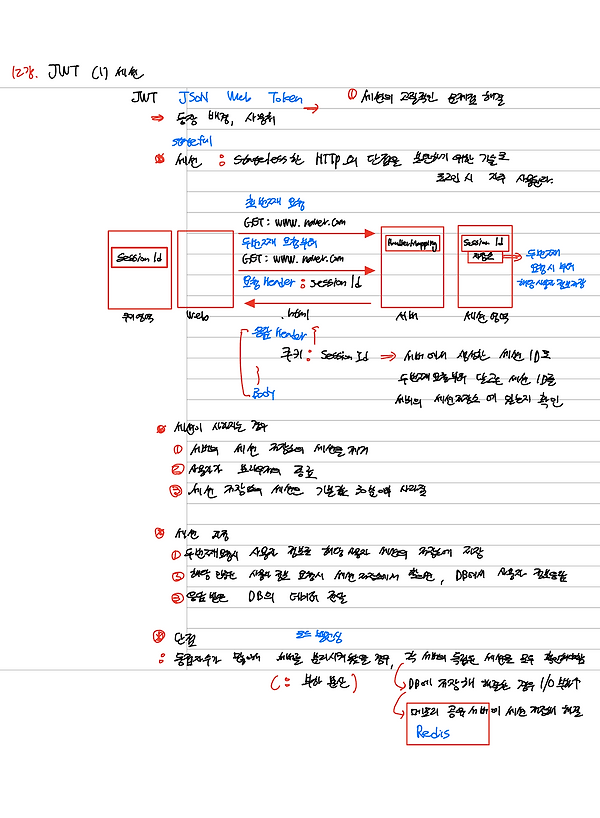 12강. JWT (1) 세션
JWT JSON Web Token → ① 세션의 고질적인 문제점 해결
⇒ 등장 배경, 사용처
stateful
세션 : stateless한 HTTP의 단점을 보완하기 위한 기술로
로그인 시 자주 사용된다.
첫번째 요청
GET : www.naver.com
두번째 요청부터
GET : www.naver.com
요청 Header : session Id
.html
Session Id
쿠키영역
Web
서버
Session Id
저장소
세션 영역
두번째
요청시 부터
해당 사용자 정보 저장
응답 Header
쿠키 : Session Id ⇒ 서버에서 생성한 세션 ID로
두번째 요청부터 달고온 세션 ID를
Body
서버의 세션 저장소에 있는지 확인
세션이 사라지는 경우
① 서버의 세션 저장소의 세션을 제거
② 사용자가 브라우저의 종료
③ 세션 저장소의 세션은 기본값 30분이후 사라짐
세션 과정
① 두번째 요청시 사용자 정보로 해당 사용자 세션의 저장소에 저장
② 해당 사용자 정보 요청시 세션 저장소에서 확인, DB에서 사용자 정보
③ 응답 DB의 데이터 전달
단점
로드 밸런싱
: 동접자수가 많아서 서버를 분리시켜 경우, 각 서버의 독립된 세션을 모두
( : 부하 분산 )
DB에 저장해 경우 I/O
메모리 공유 서버에 세션 저장해 해결
Redis